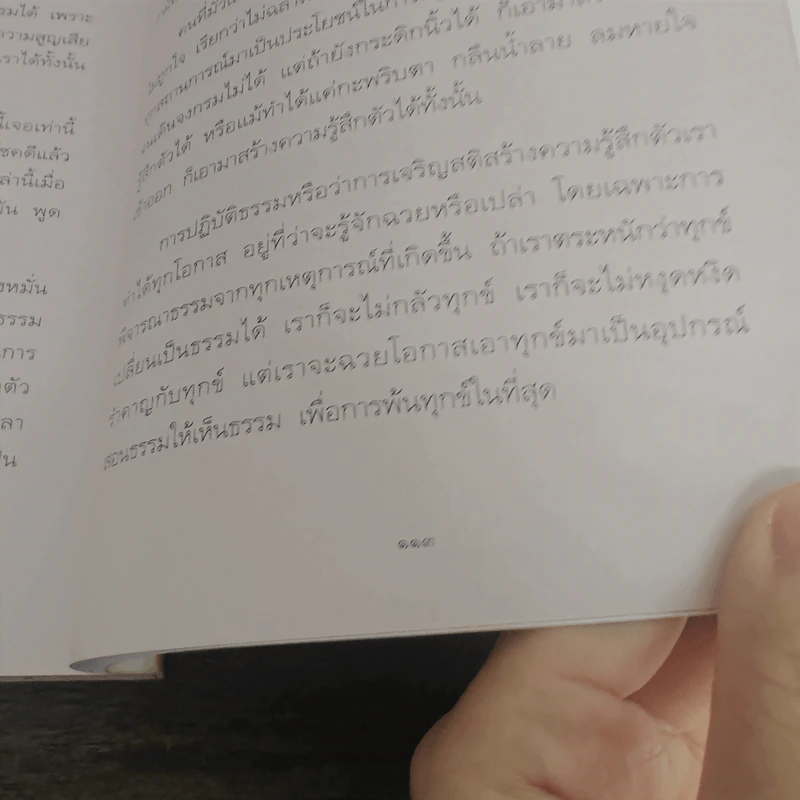 รมได้ เพราะ
ความสูญเสีย
ราได้ทั้งนั้น
นี้เจอเท่านี้
โชคดีแล้ว
ล่านี้เมื่อ
พูด
งหมั่น
ธรรม
การ
งตัว
ลา
ใน
ไม่ถูกใจ เรียกว่าไม่ฉลาด
ทุกสถานการณ์มาเป็นประโยชน์ในการ
จนเดินจงกรมไม่ได้ แต่ถ้ายังกระดิกนิ้วได้ ก็เอามา
รู้สึกตัวได้ หรือแม้ทำได้แค่กะพริบตา กลืนน้ำลาย ลมหายใจ
เข้าออก ก็เอามาสร้างความรู้สึกตัวได้ทั้งนั้น
การปฏิบัติธรรมหรือว่าการเจริญสติสร้างความรู้สึกตัวเรา
ทำได้ทุกโอกาส อยู่ที่ว่าจะรู้จักฉวยหรือเปล่า โดยเฉพาะการ
พิจารณาธรรมจากทุกเหตุการณ์ที่เกิดขึ้น ถ้าเราตระหนักว่าทุกข์
เปลี่ยนเป็นธรรมได้ เราก็จะไม่กลัวทุกข์ เราก็จะไม่หงุดหงิด
รำคาญกับทุกข์ แต่เราจะฉวยโอกาสเอาทุกข์มาเป็นอุปกรณ์
สอนธรรมให้เห็นธรรม เพื่อการพ้นทุกข์ในที่สุด
๑๑๓